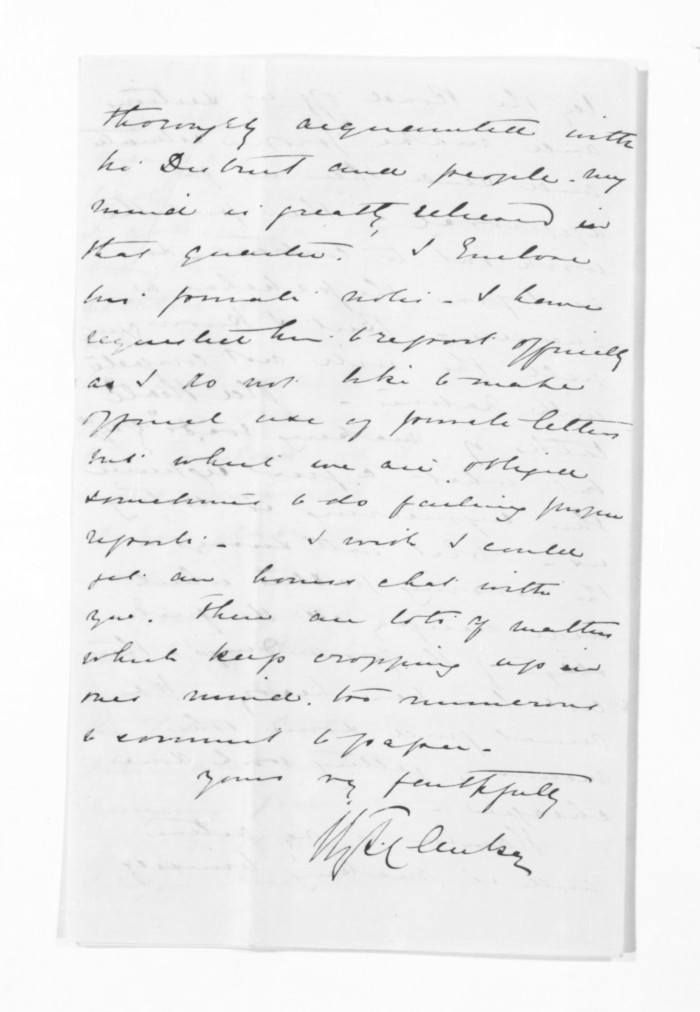 thoroughly acquainted with
his District and people - my
mind is greatly relieved in
that quarter. I Enclose
his private notes - I have
requested him to report officially
as I do not like to make
official use of private letters
but what we are obliged
sometimes to do failing proper
reports - I wish I could
get an hours chat with
you. There are lots of matters
which keep cropping up in
ones mind. too numerous
to commit to paper -
yours vy faithfully